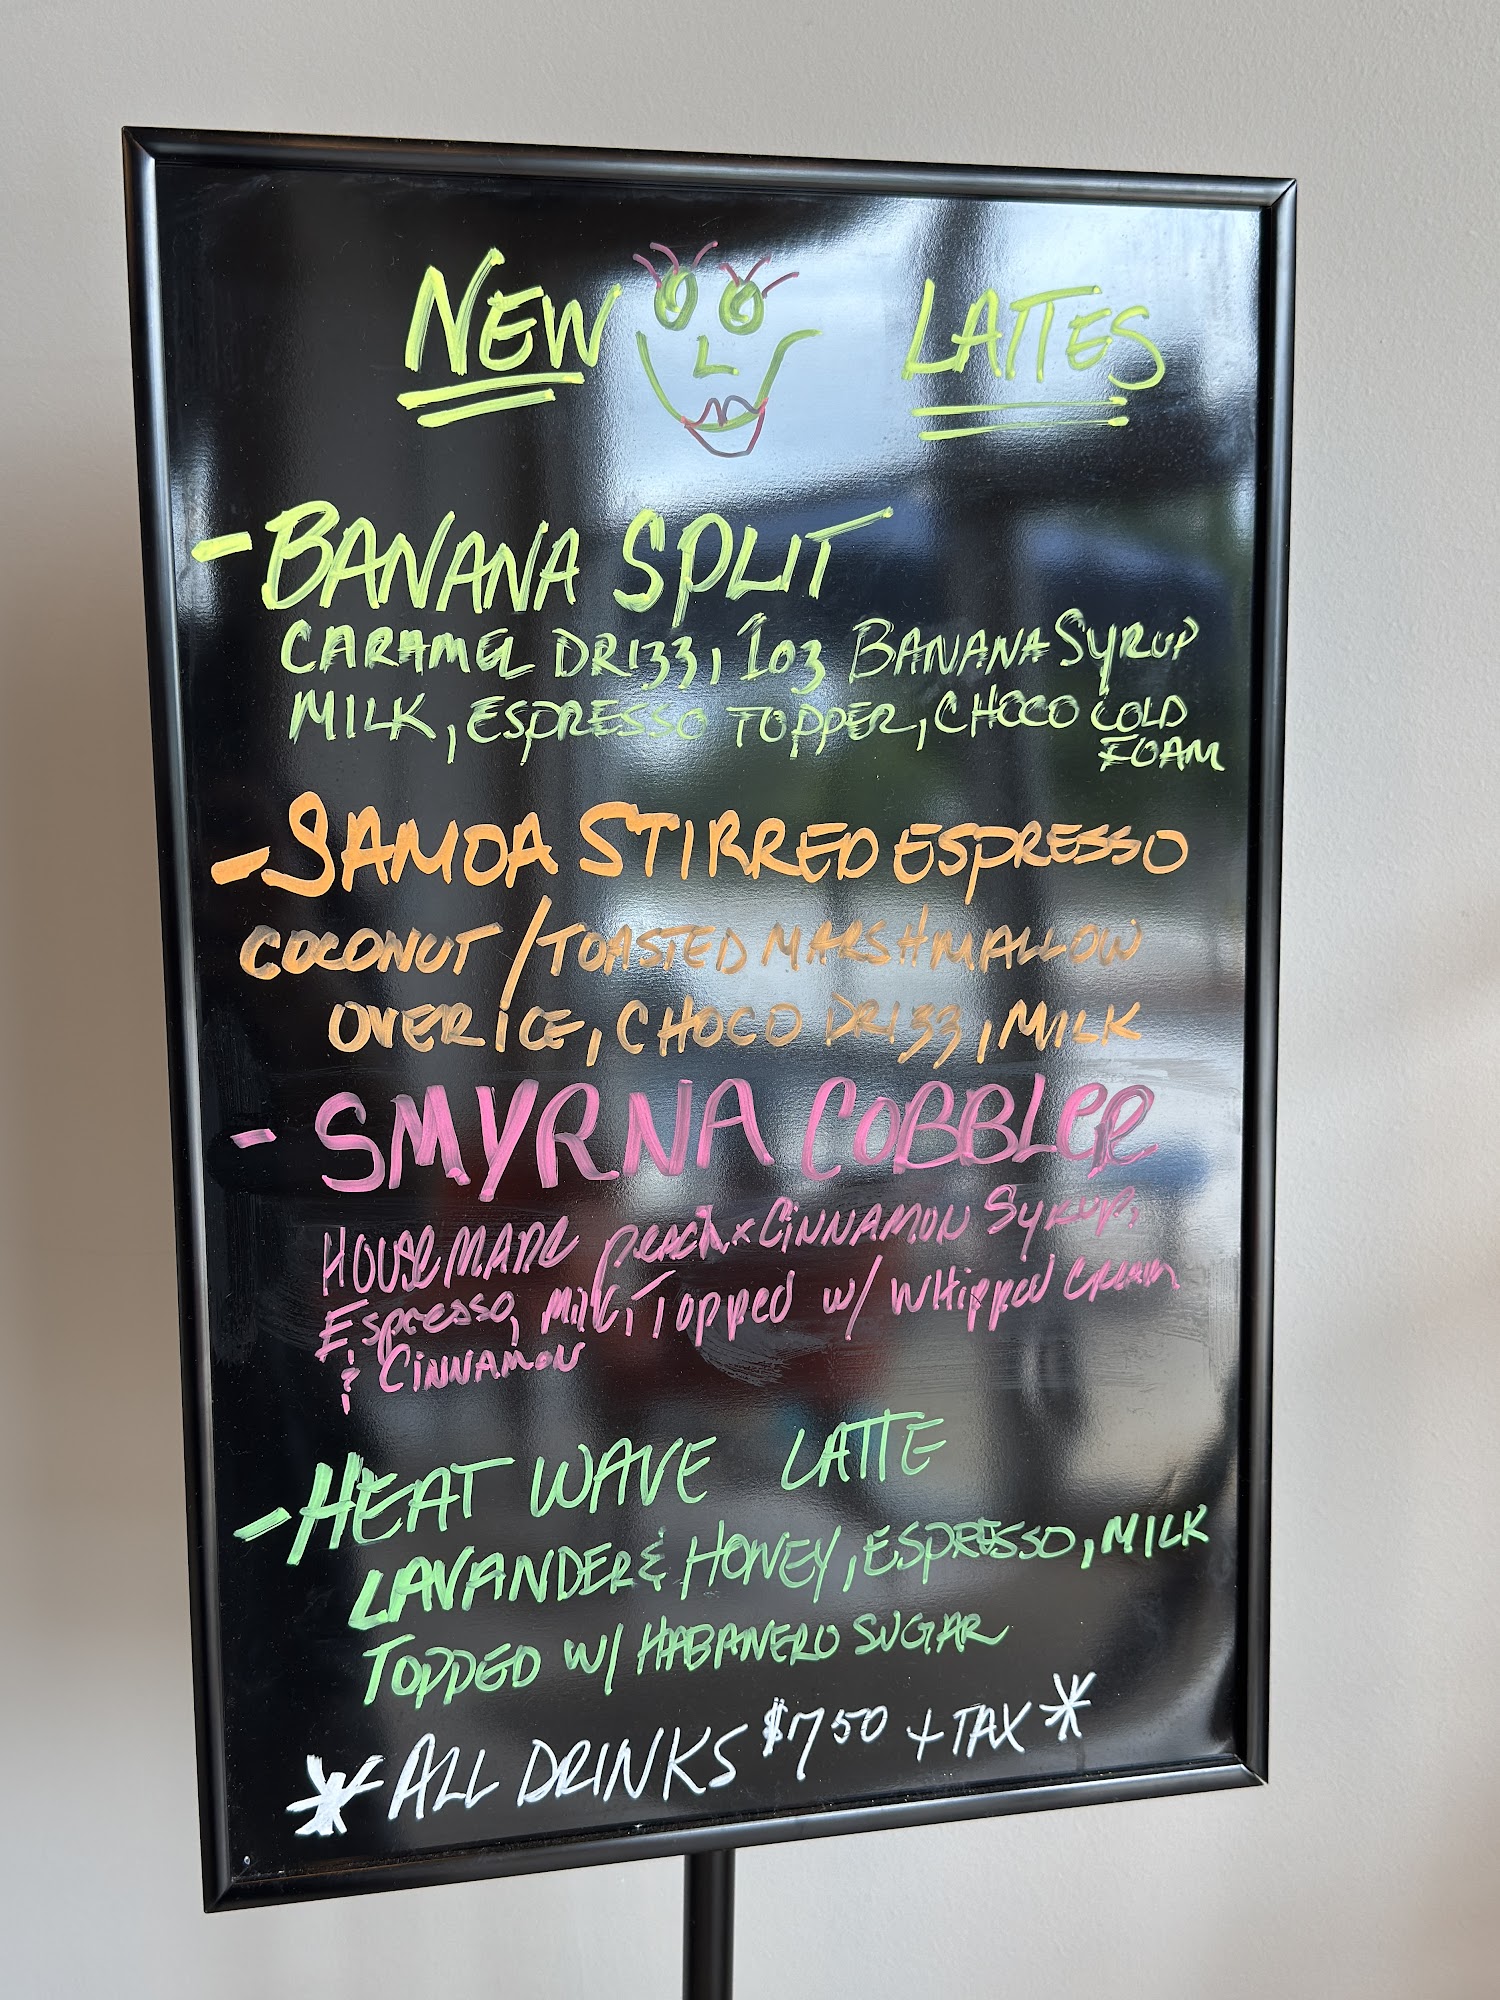 NEW LATTES
- BANANA SPLIT
CARAMEL DRIZZ, 1oz BANANA SYRUP
MILK, ESPRESSO TOPPER, CHOCO COLD
FOAM
- SAMOA STIRRED ESPRESSO
COCONUT / TOASTED MARSHMALLOW
OVER ICE, CHOCO DRIZZ, MILK
- SMYRNA COBBLER
HOUSEMADE peach x CINNAMON SYRUP,
Espresso, milk, Topped w/ WHipped CREAM
& CINNAMON
- HEAT WAVE LATTE
LAVANDER & HONEY, ESPRESSO, MILK
TOPPED W/ HABANERO SUGAR
* ALL DRINKS $7.50 + TAX *